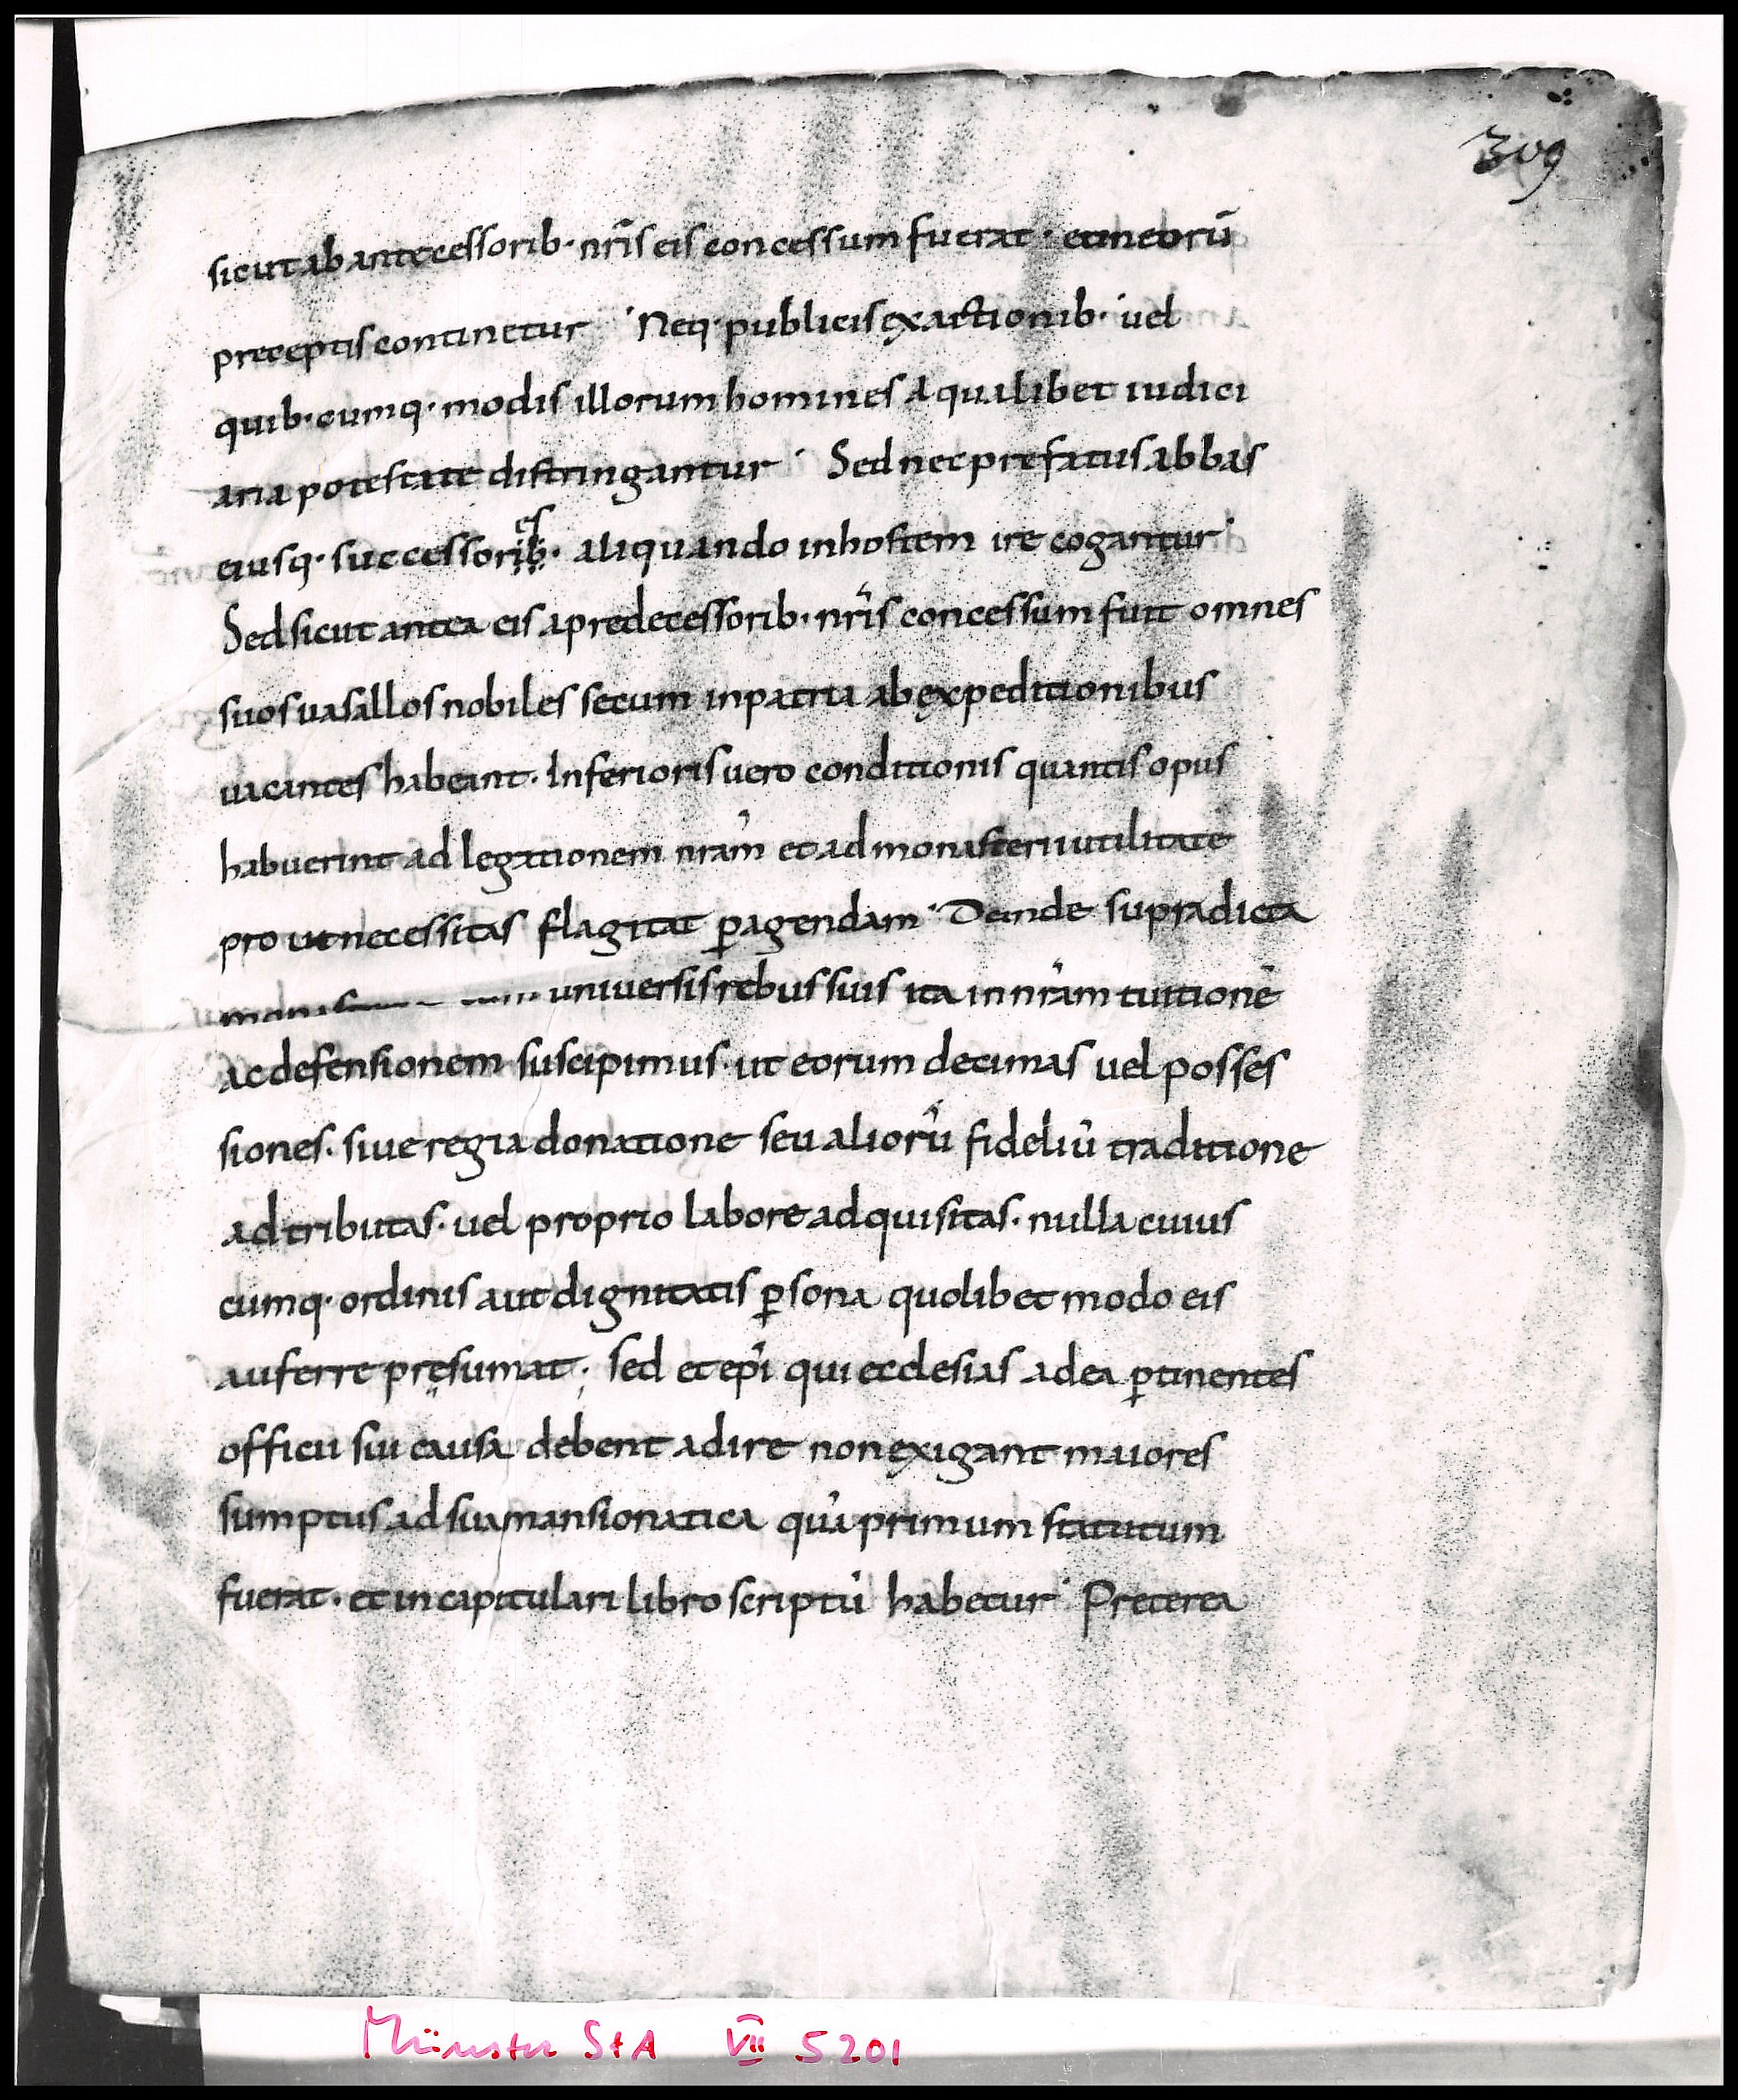 309
sicut ab antecessorib· nr̄is eis concessum fuerat· et in eorū
preceptis continetur· Neq· publicis exactionib· uel
quib·cumq· modis illorum homines a qualibet iudici
aria potestate distringantur· Sed nec prefatus abbas
es
eiusq· successorib· aliquando in hostem ire cogantur·
Sed sicut antea eis a predecessorib· nr̄is concessum fuit omnes
suos uasallos nobiles secum in patria ab expeditionibus
uacantes habeant· Inferioris uero conditionis quantis opus
habuerint ad legationem nr̄am et ad monasterii utilitate
pro ut necessitas flagitat p̱agendam· Deinde supradicta
universis rebus suis ita in nr̄am tuitionē
ac defensionem suscipimus· ut eorum decimas uel posses
siones· siue regia donatione seu aliorū fideliū traditione
adtributas· uel proprio labore adquisitas· nulla cuius
cumq· ordinis aut dignitatis p̱sona quolibet modo eis
auferre pręsumat; sed et ep̄i qui ecclesias ad ea p̱tinentes
officii sui causa debent adire non exigant maiores
sumptus ad sua mansionatica quā primum statutum
fuerat· et in capitulari libro scriptū habetur· Preterea
Münster StA VII 5201